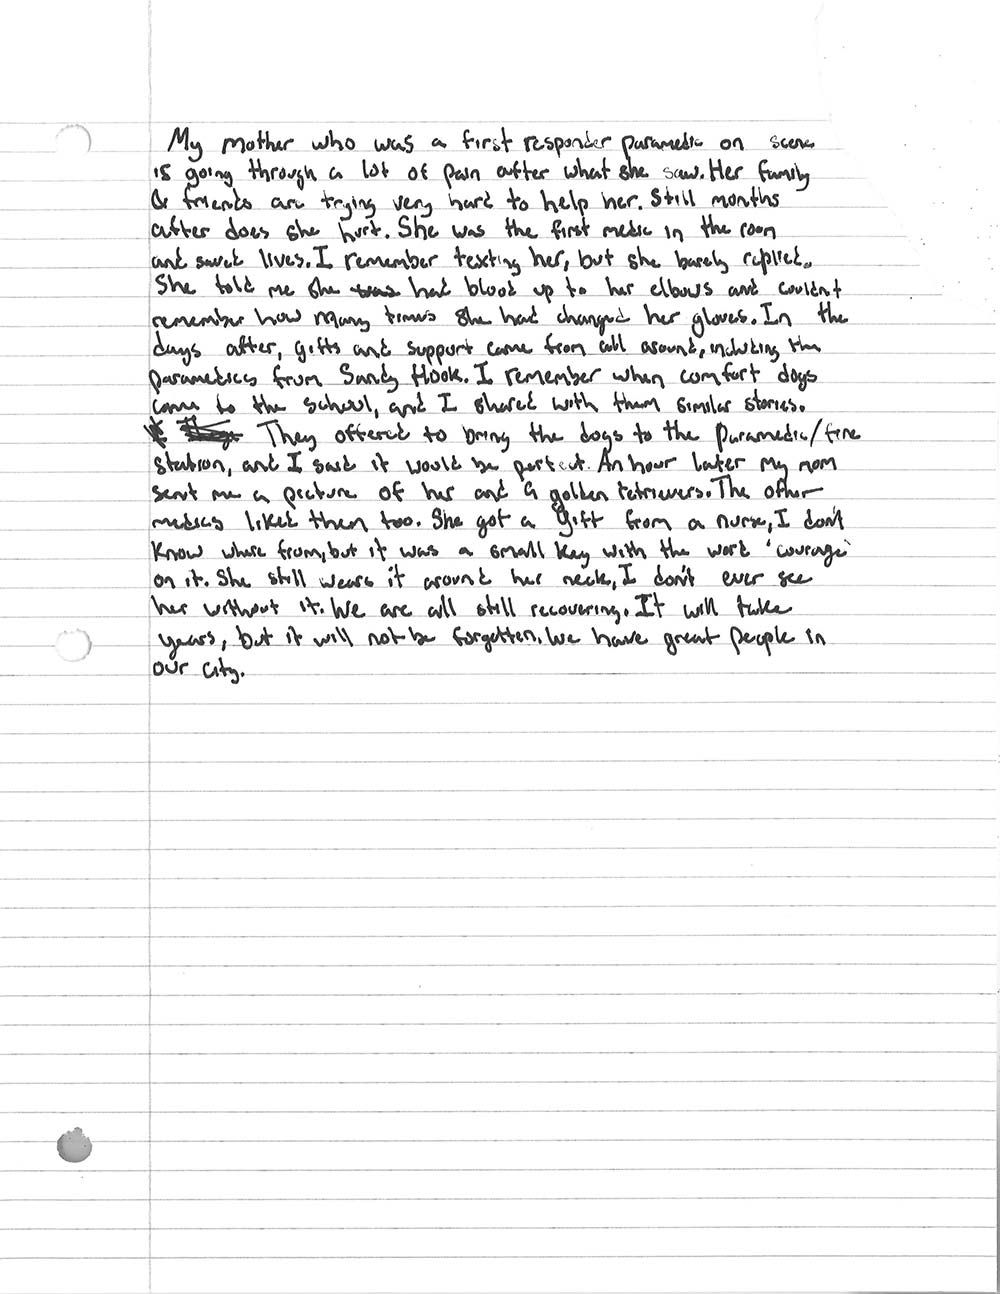 My mother who was a first responder paramedic on scene
is going through a lot of pain after what she saw. Her family
& friends are trying very hard to help her. Still months
after does she hurt. She was the first medic in the room
and saved lives. I remember texting her, but she barely replied.
She told me she was had blood up to her elbows and couldnt
remember how many times she had changed her gloves. In the
days after, gifts and support came from all around, including the
paramedics from Sandy Hook. I remember when comfort dogs
came to the school, and I shared with them similar stories.
They offered to bring the dogs to the paramedic/fire
station, and I said it would be perfect. An hour later my mom
sent me a picture of her and 4 golden retrievers. The other
medics liked them too. She got a gift from a nurse, I don't
know where from, but it was a small key with the word 'courage'
on it. She still wears it around her neck, I don't ever see
her without it. We are all still recovering. It will take
years, but it will not be forgotten. We have great people in
our city.